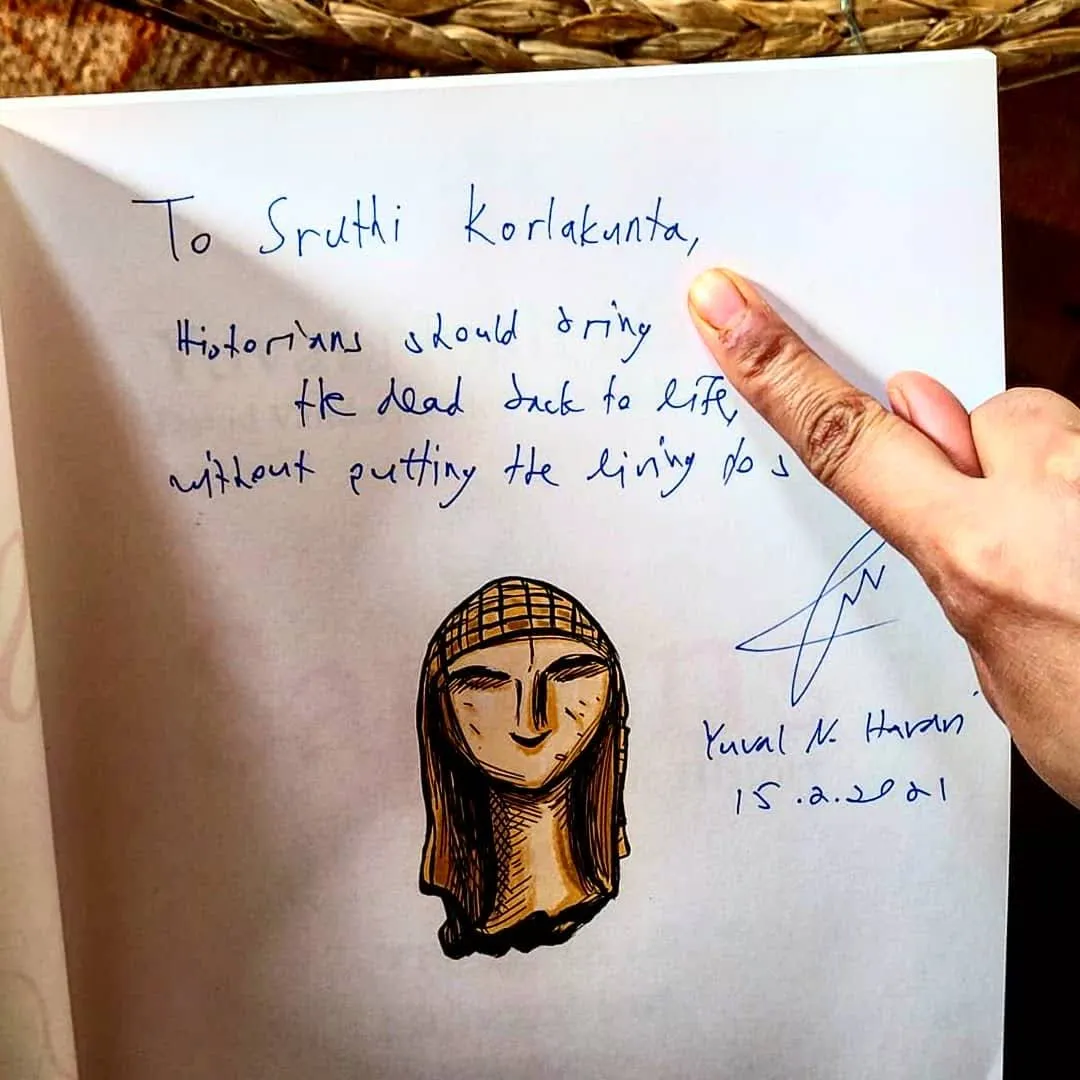 To Sruthi Korlakunta,
Historians should bring
the dead back to life,
without putting the living to s
Yuval N. Harari
15.2.2021